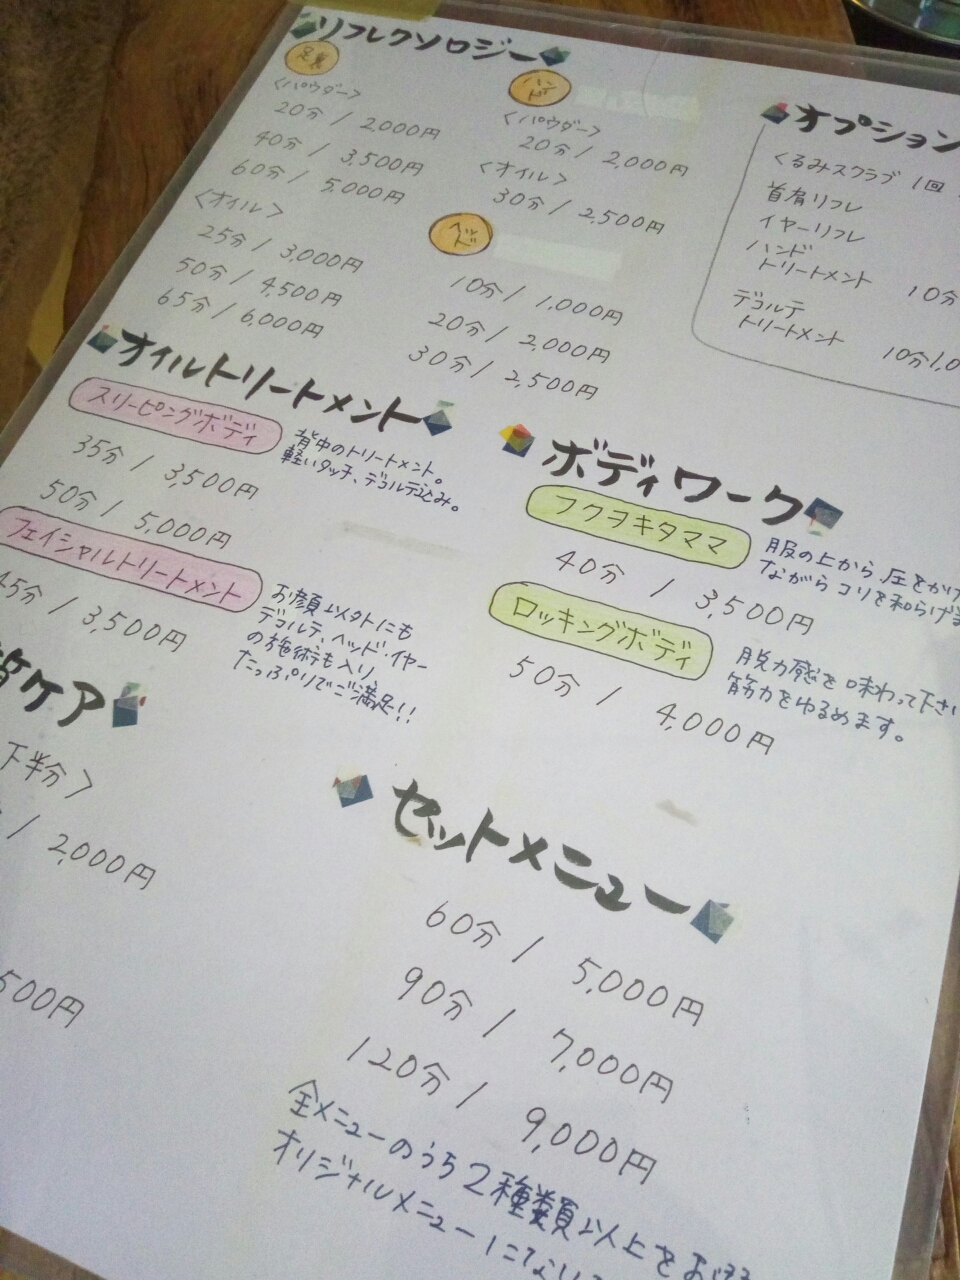 リフレクソロジー
足裏
<パウダー>
20分 / 2,000円
40分 / 3,500円
60分 / 5,000円
<オイル>
25分 / 3,000円
50分 / 4,500円
65分 / 6,000円
ハンド
<パウダー>
20分 / 2,000円
<オイル>
30分 / 2,500円
ヘッド
10分 / 1,000円
20分 / 2,000円
30分 / 2,500円
オプション
くるみスクラブ 1回
首肩リフレ
イヤーリフレ
ハンド
トリートメント 10分
デコルテ
トリートメント 10分1,0
オイルトリートメント
スリーピングボディ
背中のトリートメント。
軽いタッチ、デコルテ込み。
35分 / 3,500円
50分 / 5,000円
フェイシャルトリートメント
お顔以外にも
デコルテ、ヘッド・イヤー
の施術も入り、
たっぷりでご満足!!
45分 / 3,500円
ボディワーク
フクヲキタママ
服の上から圧をかけ
ながらコリを和らげ
40分 / 3,500円
ロッキングボディ
脱力感を味わって下さい
筋力をゆるめます。
50分 / 4,000円
ケア
下半分>
/ 2,000円
500円
セットメニュー
60分 / 5,000円
90分 / 7,000円
120分 / 9,000円
全メニューのうち2種類以上を
オリジナルメニューに